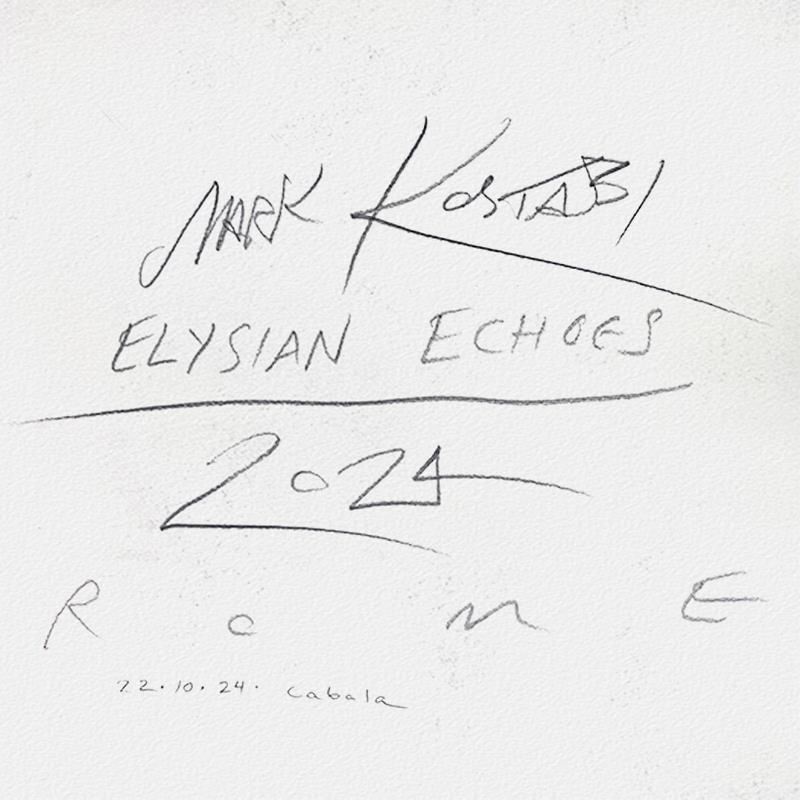 MARK KOSTABI
ELYSIAN ECHOES
2024
ROME
22.10.24. Cabala